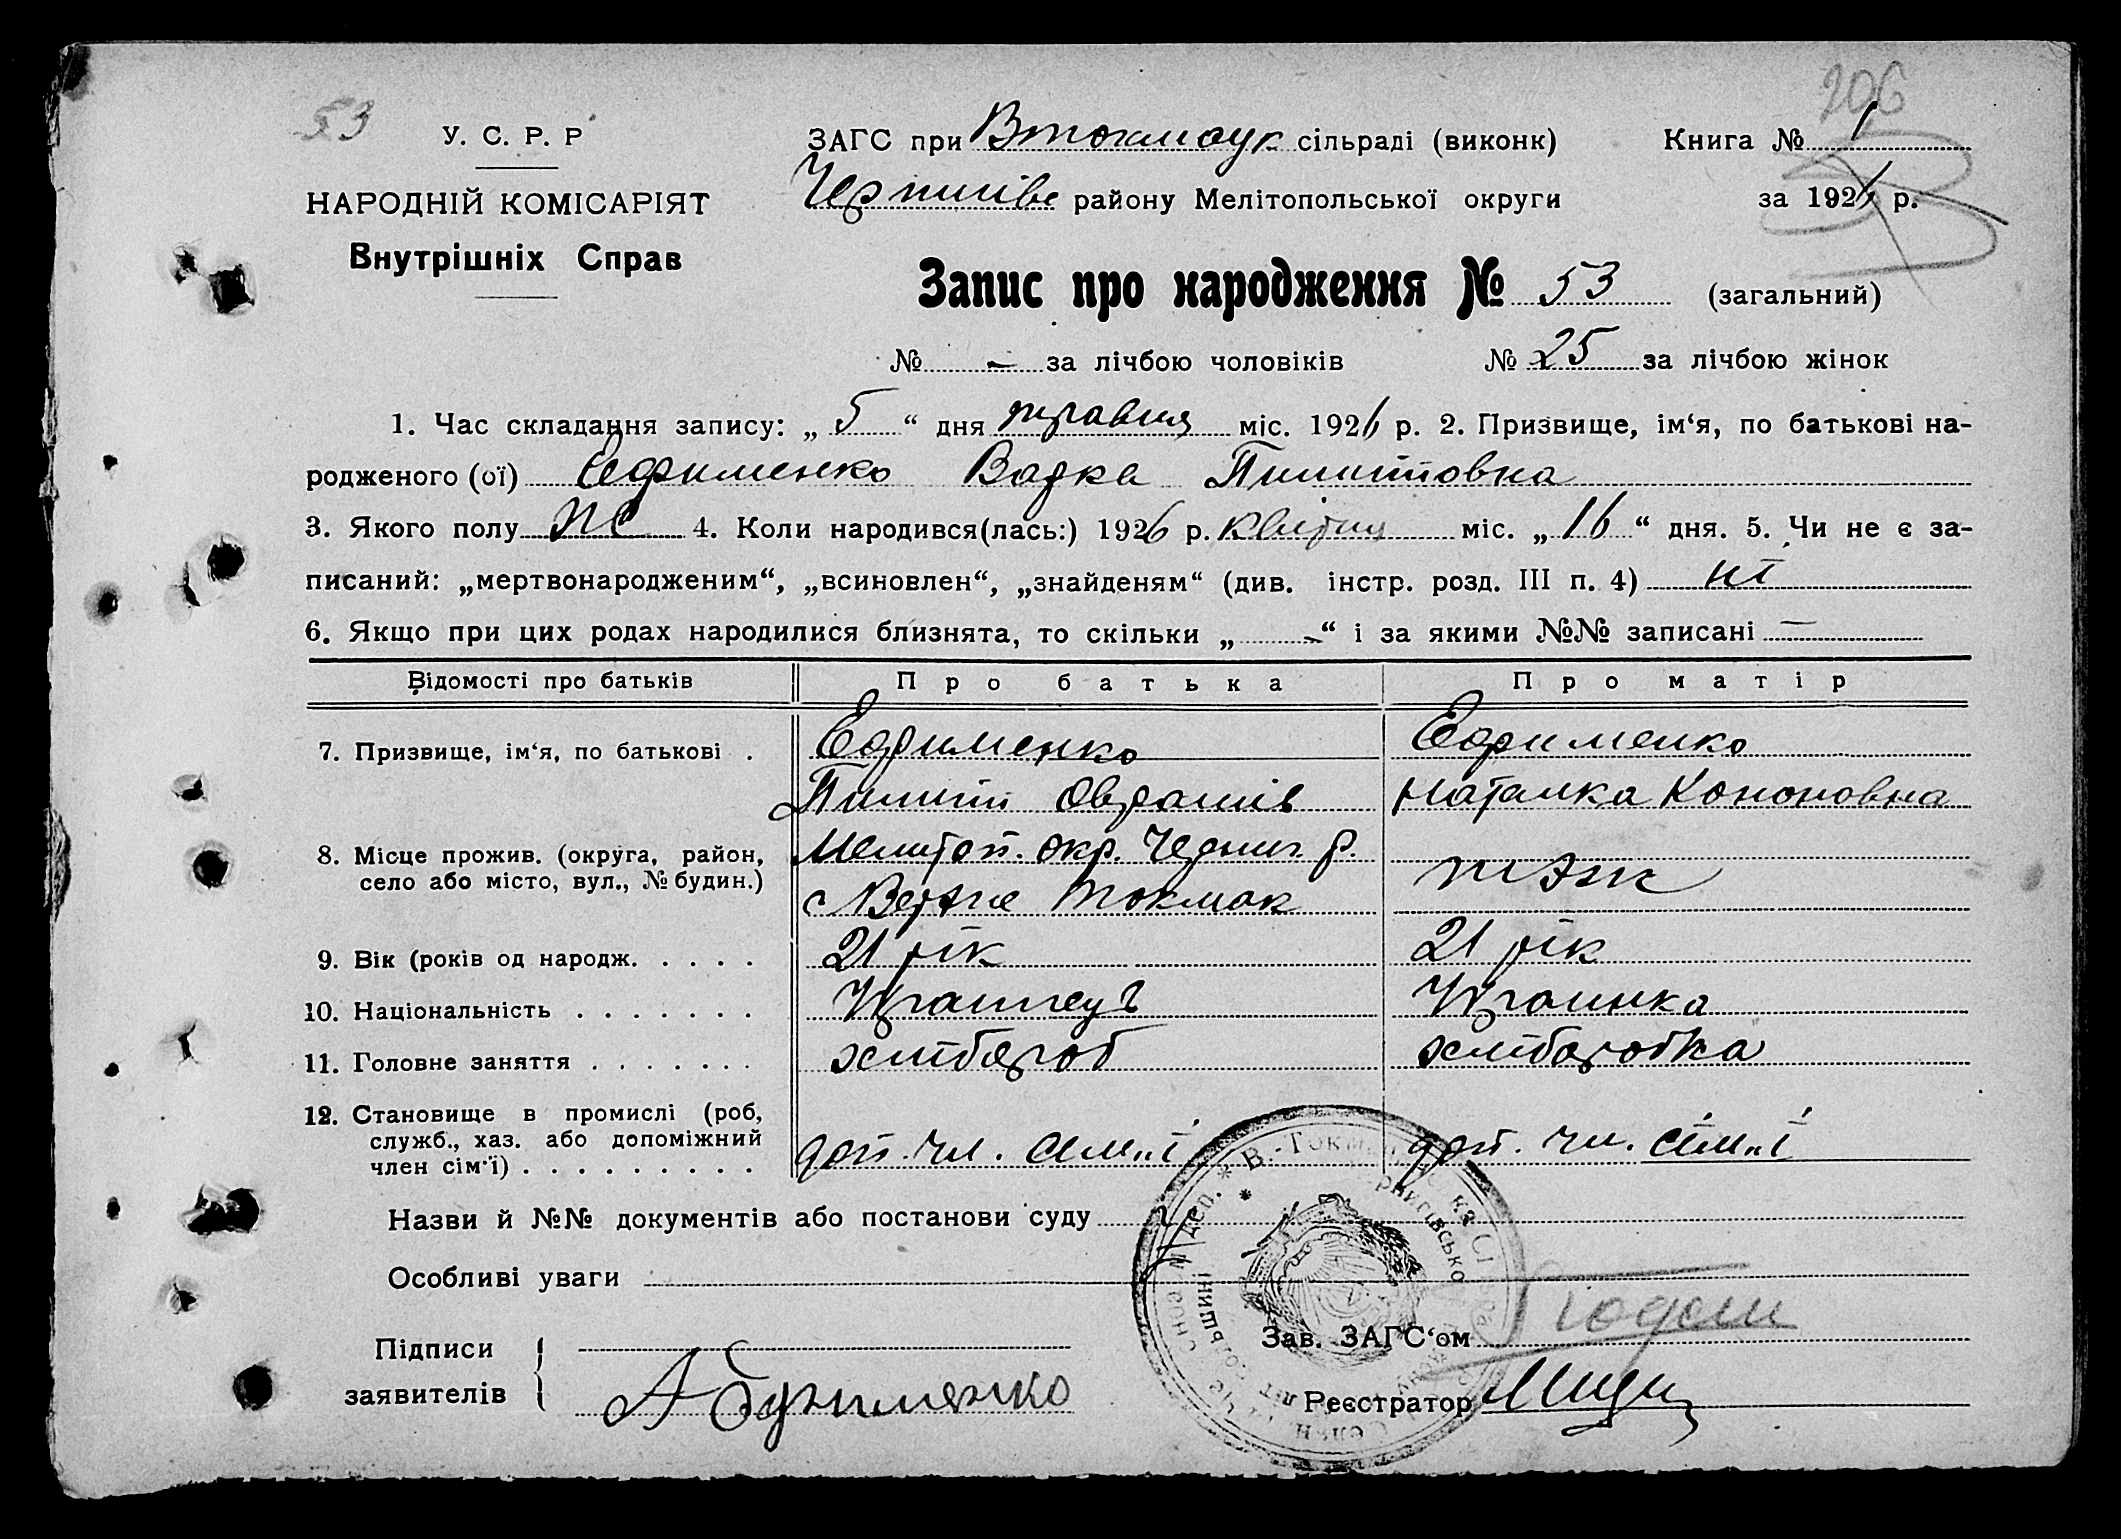 53
206
У. С. Р. Р
ЗАГС при Втокмацук сільраді (виконк) Книга № 1
НАРОДНІЙ КОМІСАРІЯТ
Чернигівс району Мелітопольської округи за 1926 р.
Внутрішніх Справ
Запис про народження № 53 (загальний)
№ - за лічбою чоловіків № 25 за лічбою жінок
1. Час складання запису: „ 5 “ дня травня міс. 1926 р. 2. Призвище, ім‘я, по батькові на-
родженого (ої) Ефименко Пилиповна
3. Якого полу ж 4. Коли народився(лась:) 1926 р. квітня міс. „ 16 “ дня. 5. Чи не є за-
писаний: „мертвонародженим“, „всиновлен“, „знайденям“ (див. інстр. розд. III п. 4) ні
6. Якщо при цих родах народилися близнята, то скільки „ - “ і за якими №№ записані —
Відомості про батьків Про батька Про матір
7. Призвище, ім‘я, по батькові . Ефименко Ефименко
Пилип Наталка Кононовна
8. Місце прожив. (округа, район, Мелитоп. окр. Черниг. р.
село або місто, вул., № будин.) с Верхне Токмак теж
9. Вік (років од народж. . . . . 21 рік 21 рік
10. Національність . . . . . . . Украінець Украинка
11. Головне заняття . . . . . . . хлібороб хліборобка
12. Становище в промислі (роб,
служб., хаз. або допоміжний
член сім‘ї) . . . . . . . . . доп. чл. сім"ї доп. чл. сім"ї
Назви й №№ документів або постанови суду
Особливі уваги
Підписи
Зав. ЗАГС‘ом
заявителів
Реєстратор